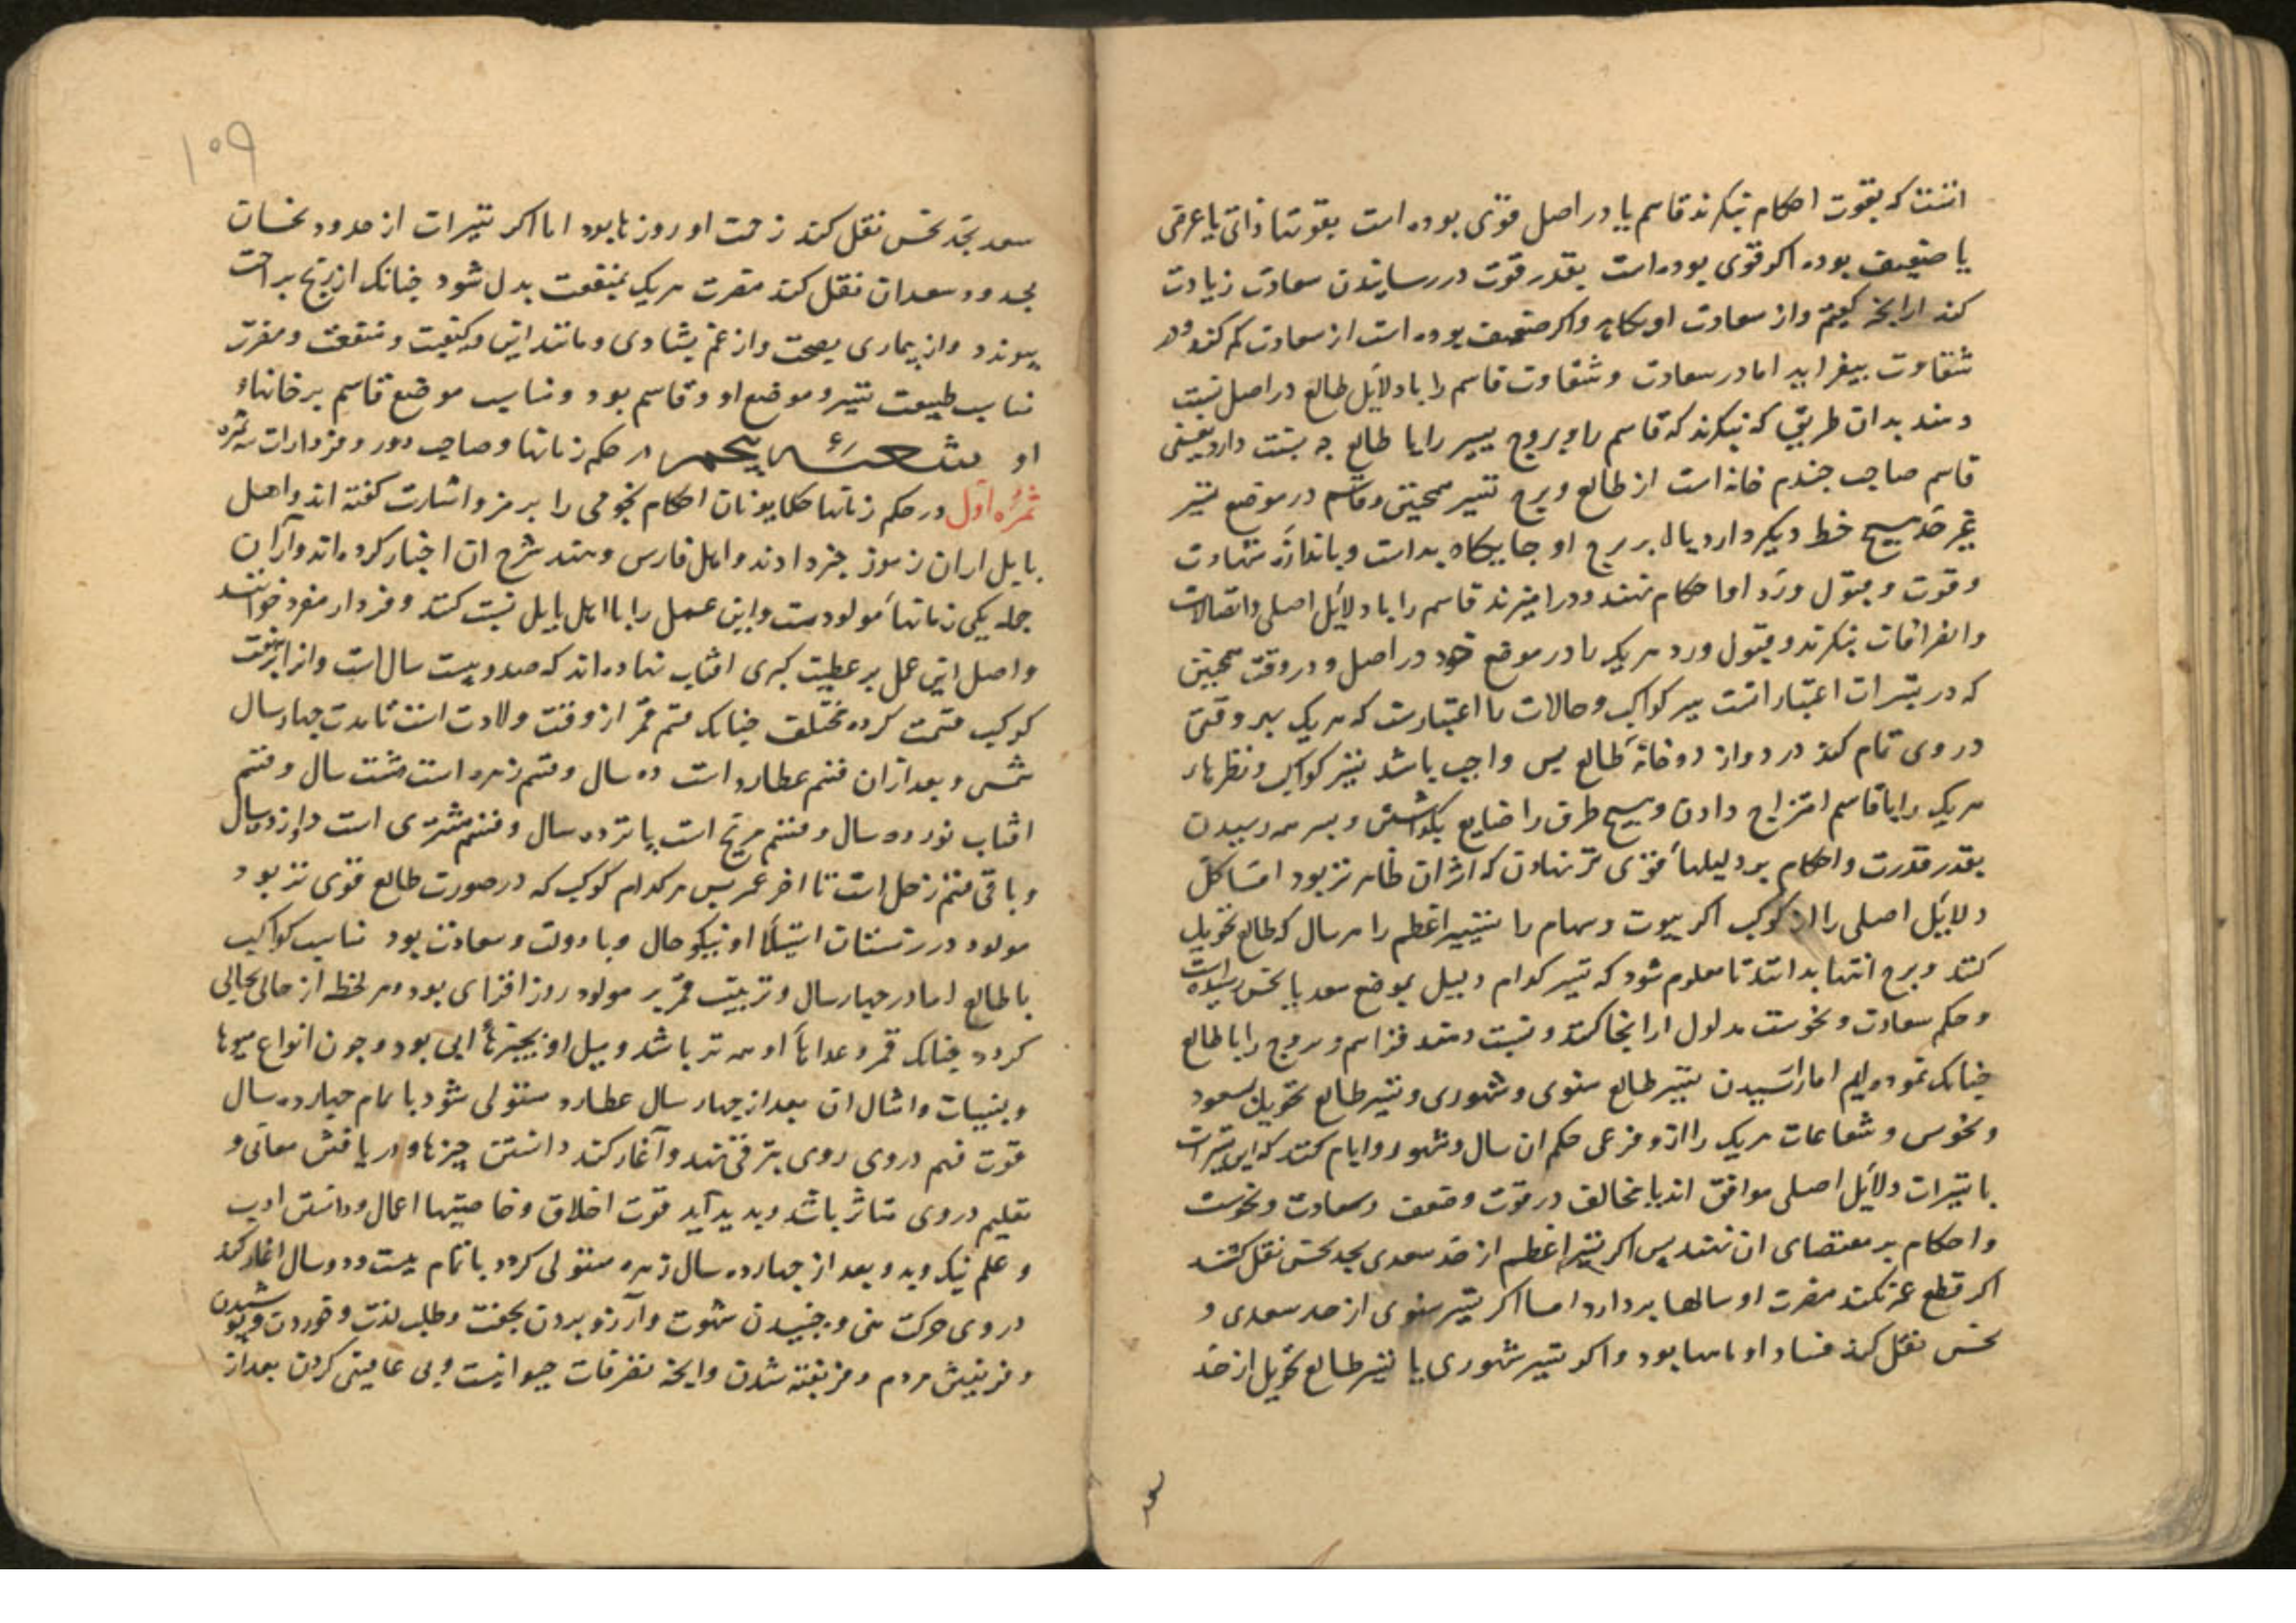 انست که بقوت احکام بنکرند قاسم یا در اصل قوی بوده است بقوتها ذاتی یا عرضی
یا ضعیف بوده اکر قوی بوده است بقدر قوت در رسانیدن سعادت زیادت
کند از انچه کفتیم واز سعادت او بکاهد واکر ضعیف بوده است از سعادت کم کند ودر
شقاوت بیفزاید اما در سعادت و شقاوت قاسم را با دلایل طالع در اصل نسبت
دهند بدان طریق که بنکرند که قاسم را وبروج تسییر را با طالع چه نسبت دارد یعنی
قاسم صاحب چندم خانه است از طالع و برج تسییر همچنین وقاسم در موضع تسییر
غیر حد هیچ خط دیکر دارد یا نه بر برج او جایکاه بد است و باندازه شهادت
و قوت و قبول ورد او احکام نهند ودرامیزند قاسم را با دلایل اصلی واتصالات
وانصرافات بنکرند وقبول ورد هریک را در موضع خود در اصل و در وقت همچنین
که در تسییرات اعتبار انست سیر کواکب و حالات را اعتبارست که هریک بهر وقتی
در وی تمام کند در دوازده خانهٔ طالع پس واجب باشد تسییر کواکب ونظرهاء
هریک را با قاسم امتزاج دادن و هیچ طرف را ضایع نکذاشتن وبسر همه رسیدن
بقدر قدرت واحکام بر دلیلهاء قوی تر نهادن که اثر ان ظاهرتر بود اما کل
دلایل اصلی را از کوکب اکر بیوت وسهام را تسییر اعظم را هر سال که طالع تحویل
کنند و برج انتها بدانند تا معلوم شود که تسییر کدام دلیل بموضع سعد یا نحس رسیده است
و حکم سعادت و نحوست مدلول ازانجا کنند و نسبت دهند قواسم و بروج را با طالع
چنانک نموده‌ایم اما رسیدن تسییر طالع سنوی و شهوری و تسییر طالع تحویل بسعود
و نحوس و شعاعات هریک را از و فرعی حکم ان سال وشهور وایام کنند که این تسییرات
با تسییرات دلایل اصلی موافق اند یا مخالف در قوت وضعف وسعادت ونحوست
واحکام بر مقتضای ان نهند پس اکر تسییر اعظم از حد سعدی بحد نحس نقل کند
اکر قطع عمر نکند مضرت او سالها بردارد اما اکر تسییر سنوی از حد سعدی و
نحس نقل کند فساد او ماهها بود واکر تسییر شهوری یا تسییر طالع تحویل از حد
۱۰۹
سعد بحد نحس نقل کند زحمت او روزها بود اما اکر تسییرات از حدود نحسان
بحدود سعدان نقل کند مضرت هریک بمنفعت بدل شود چنانک از رنج براحت
پیوندد واز بیماری بصحت واز غم بشادی ومانند این وکیفیت ومنفعت ومضرت
مناسب طبیعت تسییر وموضع او وقاسم بود ومناسب موضع قاسم بر خانهاء
او شعبهٔ پنجم در حکم زمانها وصاحب دور وفردارات سه ثمره
ثمرهٔ اول در حکم زمانها حکما یونان احکام نجومی را برمز واشارت کفته اند واهل
بابل ازان رموز خبر دادند واهل فارس وهند شرح ان اخبار کرده اند وازان
جمله یکی زمانهاء مولودست واین عمل را با اهل بابل نسبت کنند وفردار مفرد خوانند
واصل این عمل بر عطیت کبری افتاب نهاده اند که صد وبیست سال است وانرا بر هفت
کوکب قسمت کرده مختلف چنانک قسم قمر از وقت ولادت است تا مدت چهار سال
شمسی وبعد ازان قسم عطارد است ده سال وقسم زهره است هشت سال وقسم
افتاب نوزده سال وقسم مریخ است پانزده سال وقسم مشتری است دوازده سال
وباقی قسم زحل است تا اخر عمر پس هرکدام کوکب که در صورت طالع قوی تر بود
مولود در زمان استیلاء او نیکو حال وبا دولت وسعادت بود مناسب کواکب
با طالع اما در چهار سال وتربیت قمر بر مولود روز افزای بود وهر لحظه از حالی بحالی
کردد چنانک قمر و غذاهاء او همه تر باشد ومیل او بچیزهاء ابی بود وچون انواع میوها
وبنبیات وامثال ان بعد از چهار سال عطارد مستولی شود با تمام چهارده سال
قوت فهم در وی روی بترقی نهد وآغاز کند دانستن چیزها ودر یافتن معانی و
تعلیم در وی متاثر باشد وپدید آید قوت اخلاق وخاصیتها اعمال ودانستن ادب
و علم نیک وبد وبعد از چهارده سال زهره مستولی کردد با تمام بیست ودو سال اغاز کند
در وی حرکت منی وجنبیدن شهوت وآرزو بردن بجفت وطلب لذت وخوردن وپوشیدن
وفریبش مردم وفریفته شدن وانچه تصرفات حیوانیست وبی عافیتی کردن بعد از